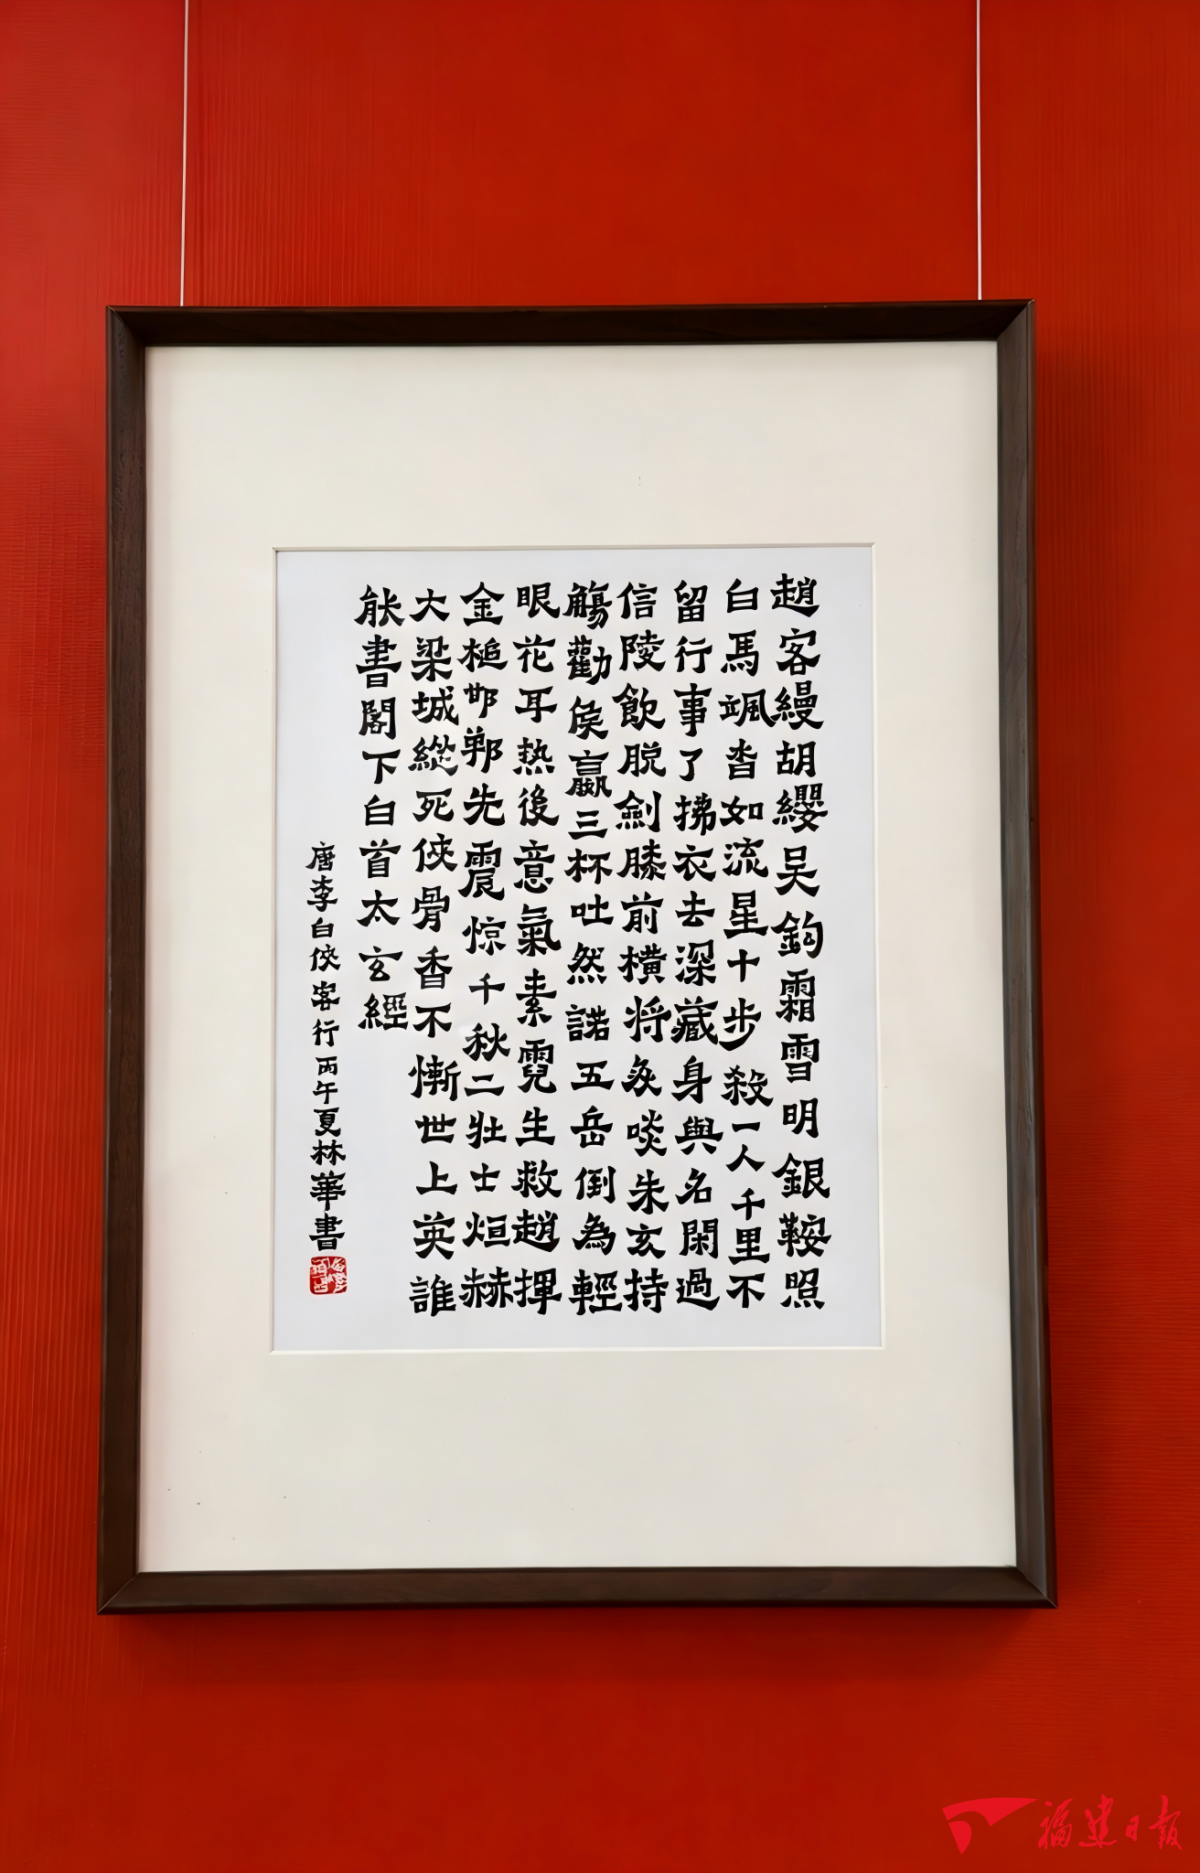 趙客縵胡纓吴鉤霜雪明銀鞍照
白馬颯沓如流星十步殺一人千里不
留行事了拂衣去深藏身與名閑過
信陵飲脱劍膝前横将炙啖朱亥持
觴勸侯嬴三杯吐然諾五岳倒為輕
眼花耳热後意氣素霓生救趙揮
金槌邯鄲先震惊千秋二壮士烜赫
大梁城縱死俠骨香不慚世上英誰
能書閣下白首太玄經
唐李白俠客行丙午夏林華書
福建日报